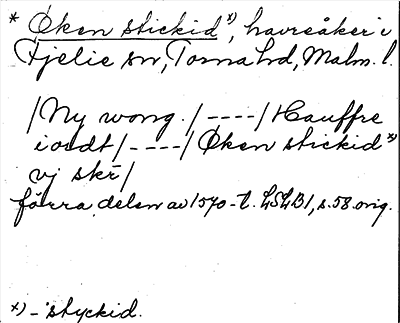 * Öken stickid *), havreåker i
Fjelie sn, Torna hd, Malm. l.
/Ny wong./----/Hauffre
iordt/----/Öken stickid *)
vj skr̄/
förra delen av 1570-t. LSLB1, s. 58 orig.
*) -styckid.